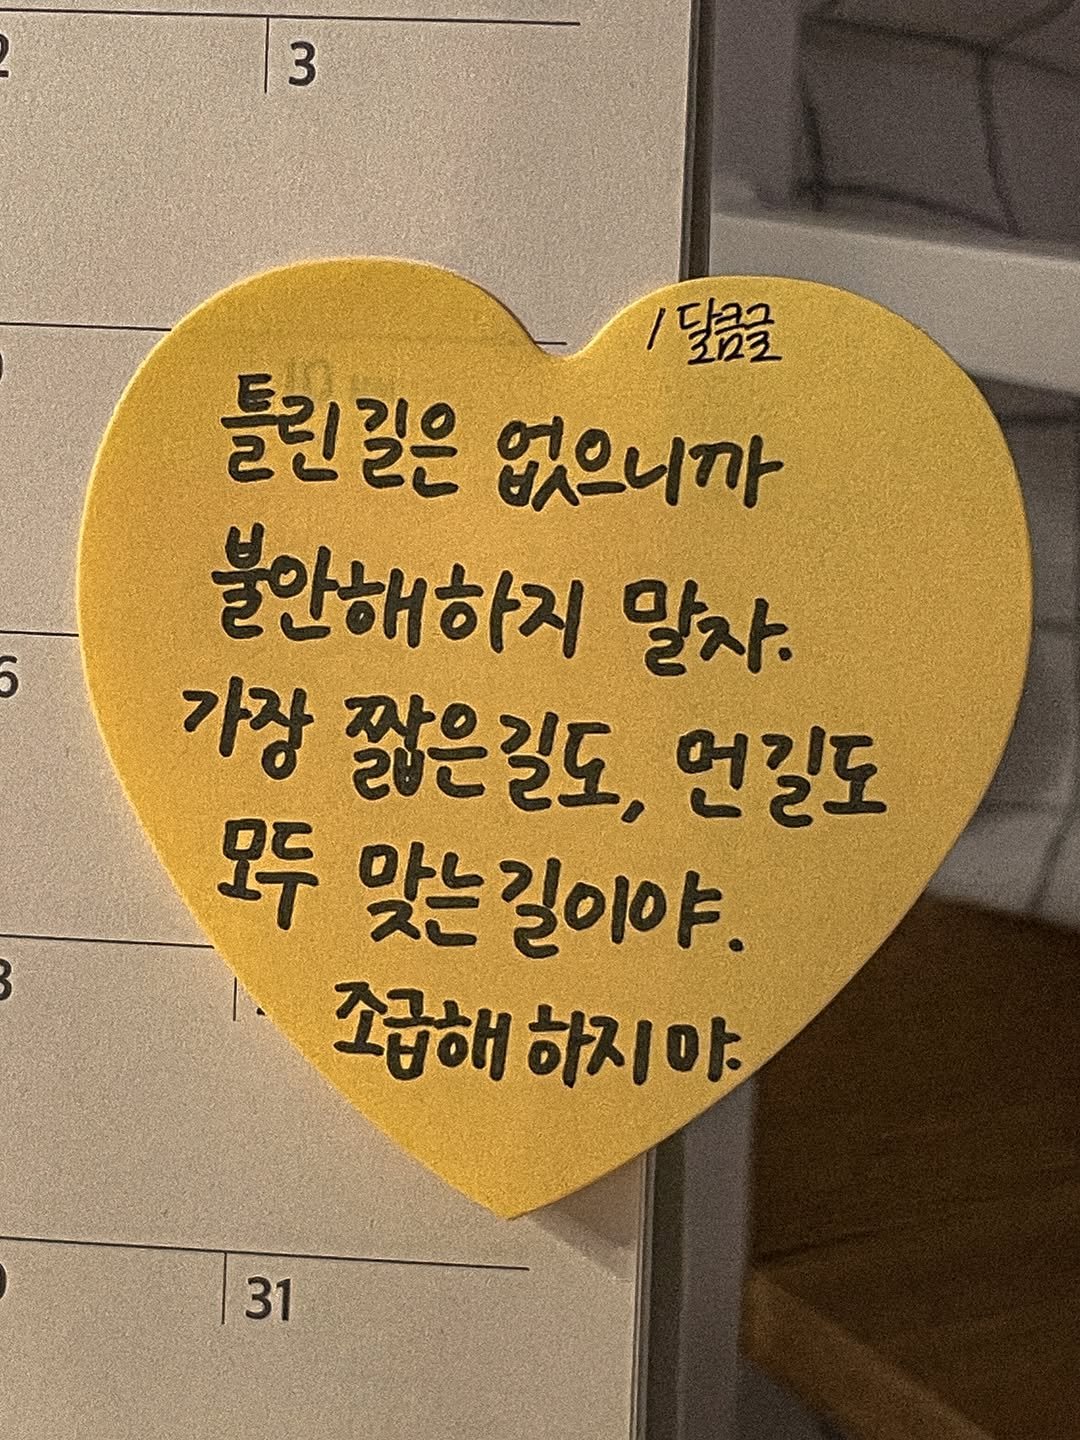 3
/ 달콤글
틀린 길은 없으니까
불안해하지 말자.
가장 짧은 길도, 먼 길도
모두 맞는 길이야.
조급해 하지 마.
31